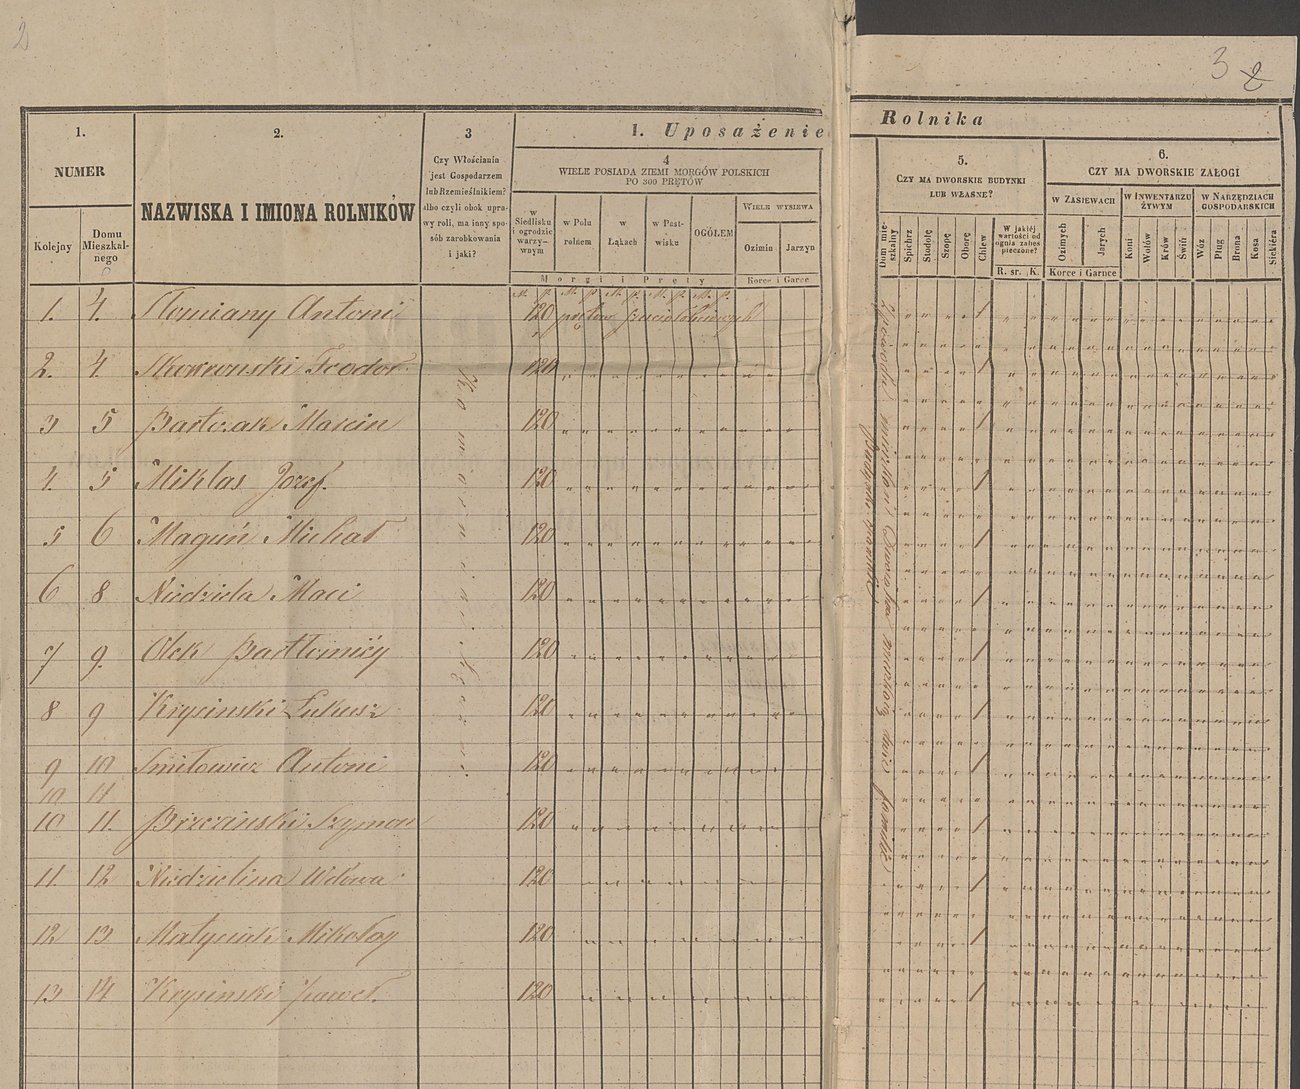 2
3 2
1. Uposażenie Rolnika
1. 2. 3 4 5. 6.
NUMER
Kolejny
Domu Mieszkalnego
NAZWISKA I IMIONA ROLNIKÓW
Czy Włościanin
jest Gospodarzem
lub Rzemieślnikiem?
albo czyli obok upra-
wy roli, ma inny spo-
sób zarobkowania
i jaki?
WIELE POSIADA ZIEMI MORGÓW POLSKICH
PO 300 PRĘTÓW
w Siedlisku i ogrodzie warzywnym
w Polu rolnem
w Łąkach
w Pastwisku
OGÓŁEM
WIELE WYSIEWA
Ozimin
Jarzyn
Morgi i Pręty
Korce i Garce
CZY MA DWORSKIE BUDYNKI
LUB WŁASNE?
Dom mieszkalny
Śpichrz
Stodołę
Szopę
Oborę
Chlew
W jakiéj
wartości od
ognia zabez
pieczone?
R. sr. K.
CZY MA DWORSKIE ZAŁOGI
w ZASIEWACH
Ozimych
Jarych
Korce i Garnce
w INWENTARZU
ŻYWYM
Koni
Wołów
Krów
Świń
w NARZĘDZIACH
GOSPODARSKICH
Wóz
Pług
Brona
Kosa
Siekiéra
M. p. M. p. M. p. M. p. M. p.
1. 4. Słomiany Antoni 120 prętów
2. 4. Skowronski Teodor 120
3 5 Bartczak Marcin 120
4. 5 Miklas Jozef. 120
5 6 Maguń Michał 120
6 8 Niedziela Maci 120
7 9. Olek Bartłomiéy 120
8 9 Krysinski Łukasz 120
9 10 Smitowicz Antoni 120
10 11
10 11. Brzezinski Szymon 120
11. 12 Niedzielina Wdowa 120
12 13 Matysiak Mikołay 120
13 14 Krysinski Paweł. 120
Komornik